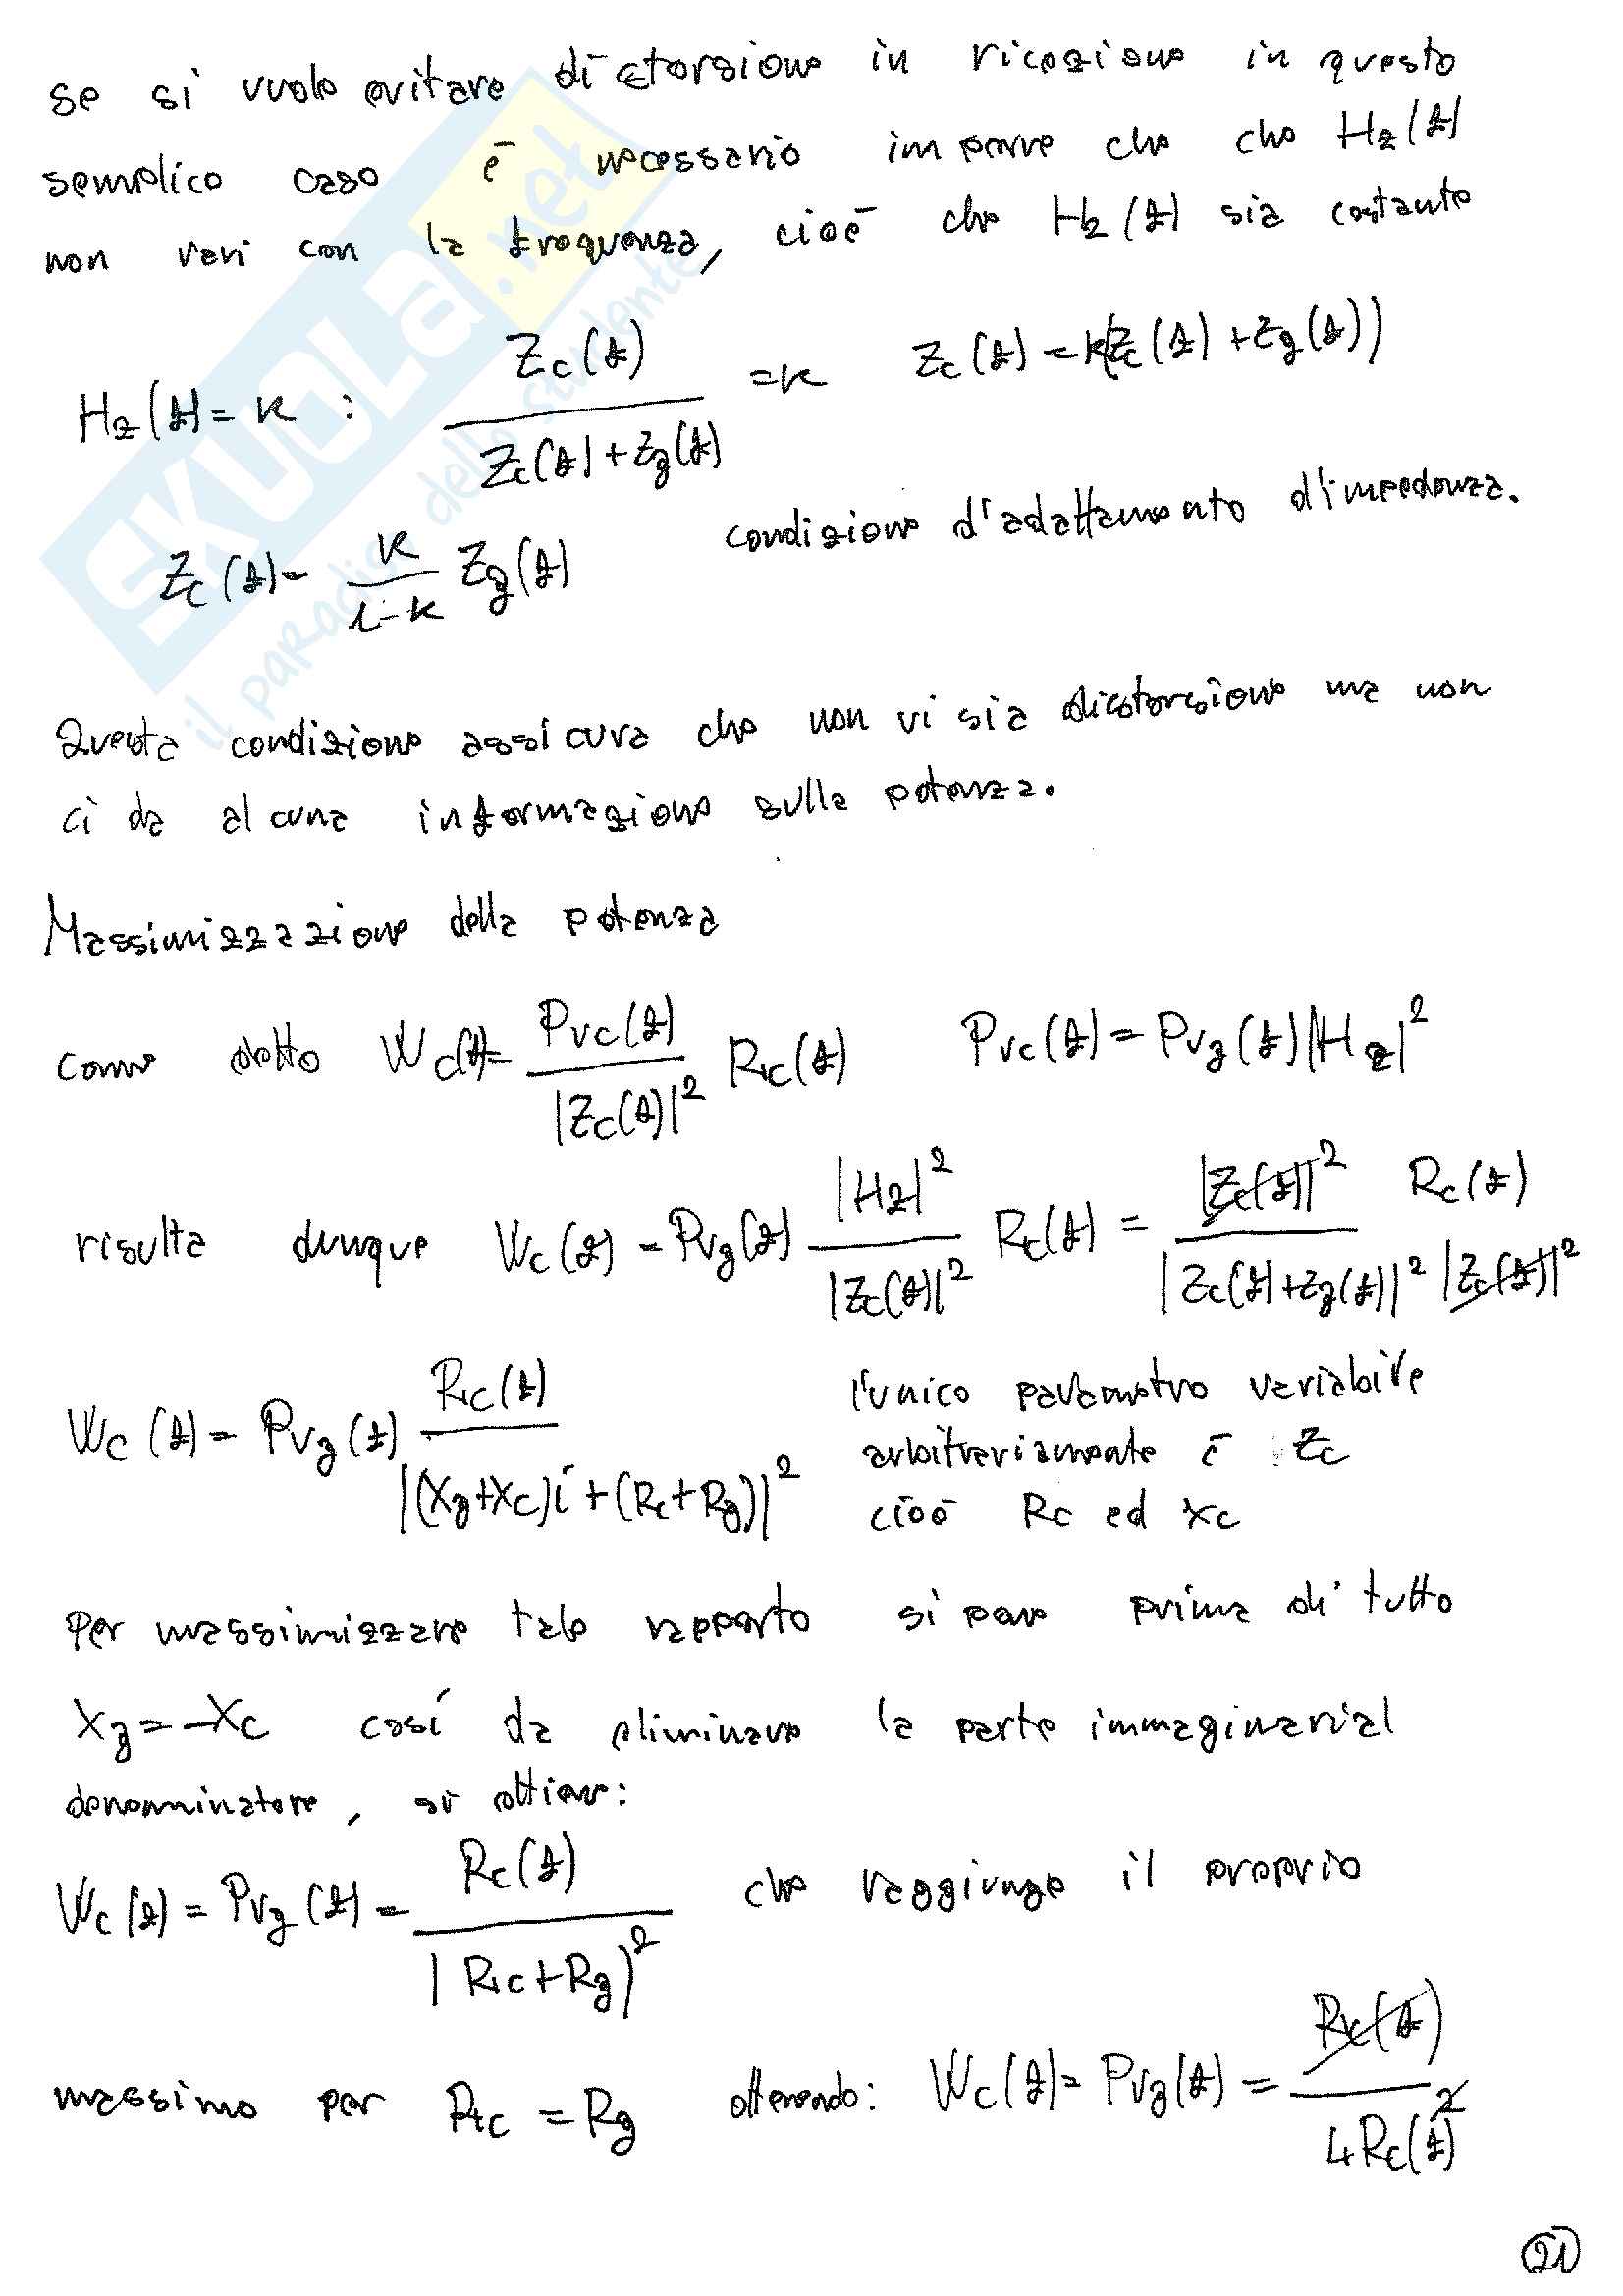 se si vuole evitare distorsione in ricezione in questo
semplice caso è necessario imporre che che Hz(f)
non vari con la frequenza, cioè che Hz(f) sia costante
Hz(f) = k : Zc(f) / (Zc(f) + Zg(f)) = k   Zc(f) = k(Zc(f) + Zg(f))
Zc(f) = k / (1-k) Zg(f)   condizione d'adattamento d'impedenza.
Questa condizione assicura che non vi sia distorsione ma non
ci da alcuna informazione sulla potenza.
Massimizzazione della potenza
come detto Wc(f) = Pvc(f) / |Zc(f)|² Rc(f)   Pvc(f) = Pvg(f) |Hz|²
risulta dunque Wc(f) = Pvg(f) |Hz|² / |Zc(f)|² Rc(f) = |Zc(f)|² Rc(f) / |Zc(f) + Zg(f)|² |Zc(f)|²
Wc(f) = Pvg(f) Rc(f) / |(Xg+Xc)i + (Rc+Rg)|²
l'unico parametro variabile
arbitrariamente è Zc
cioè Rc ed Xc
Per massimizzare tale rapporto si pone prima di tutto
Xg = -Xc così da eliminare la parte immaginaria al
denominatore, si ottiene:
Wc(f) = Pvg(f) = Rc(f) / |Rc+Rg|² che raggiunge il proprio
massimo per Rc = Rg ottenendo: Wc(f) = Pvg(f) = Rc(f) / 4Rc(f)²
21
SKUOLA.net
il paradiso dello studente